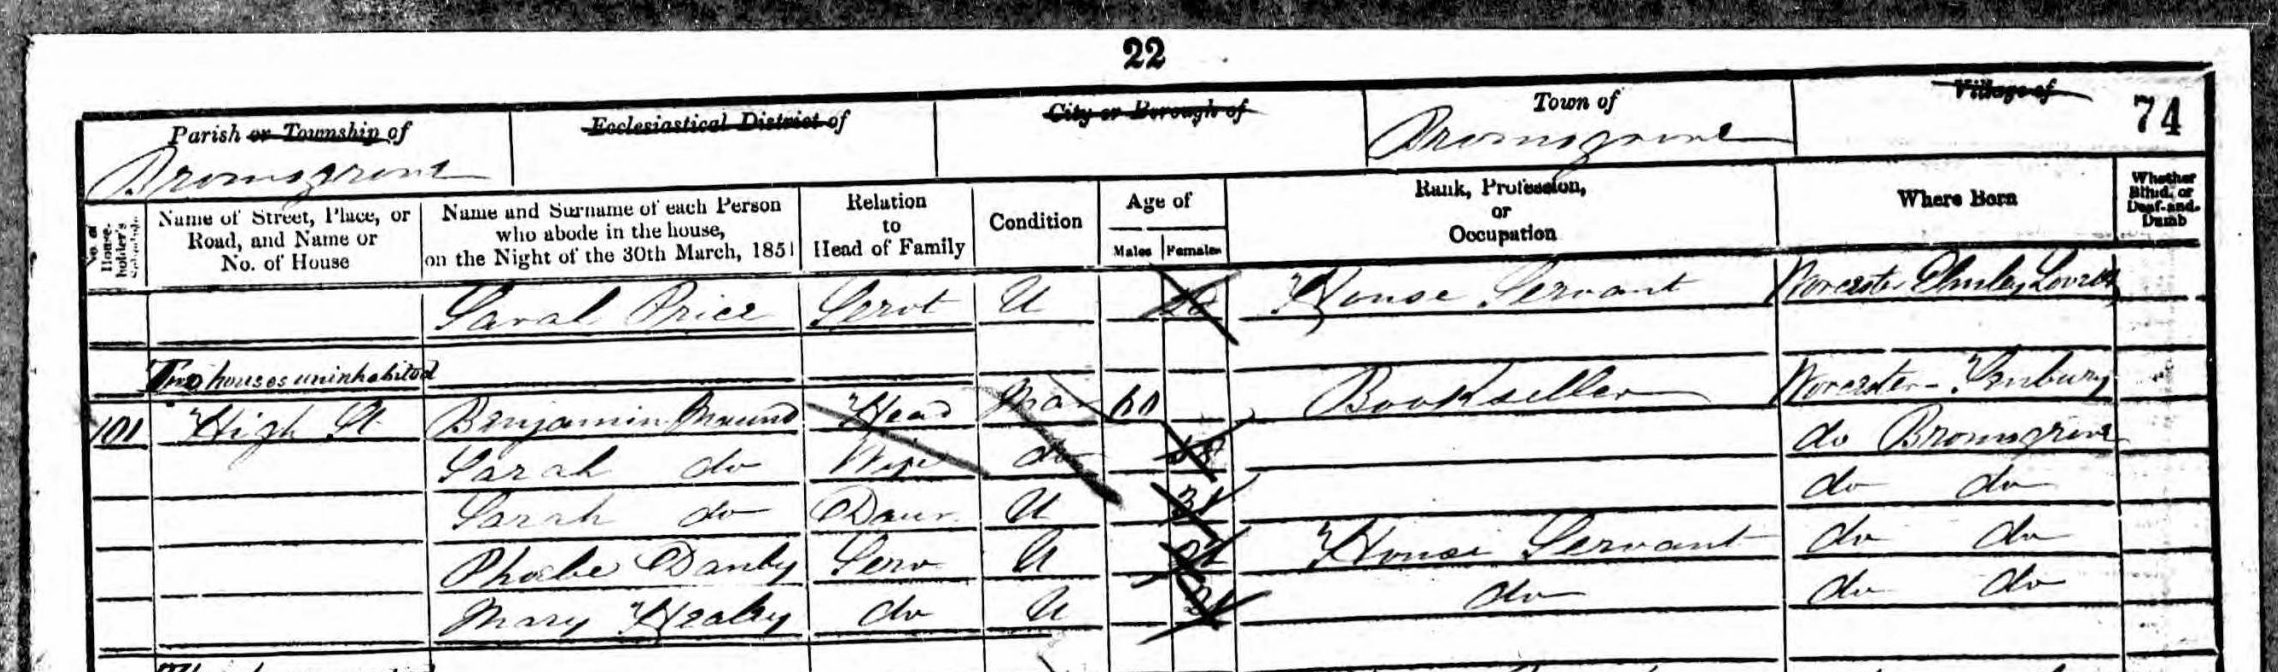 22
Parish or Township of
Ecclesiastical District of
City or Borough of
Town of
Village of
74
Bromsgrove
Bromsgrove
No. of House-holder's Schedule
Name of Street, Place, or Road, and Name or No. of House
Name and Surname of each Person who abode in the house, on the Night of the 30th March, 1851
Relation to Head of Family
Condition
Age of
Males Females
Rank, Profession, or Occupation
Where Born
Whether Blind, or Deaf-and-Dumb
Sarah Price Servt U House Servant Worcester Elmley Lovett
Two houses uninhabited
101 High St Benjamin Maund Head Mar 60 Bookseller Worcester - Tenbury
Sarah do Wife do do Bromsgrove
Sarah do Daur U 31 do do
Phoebe Danby Serv U House Servant do do
Mary Healey do U 21 do do do